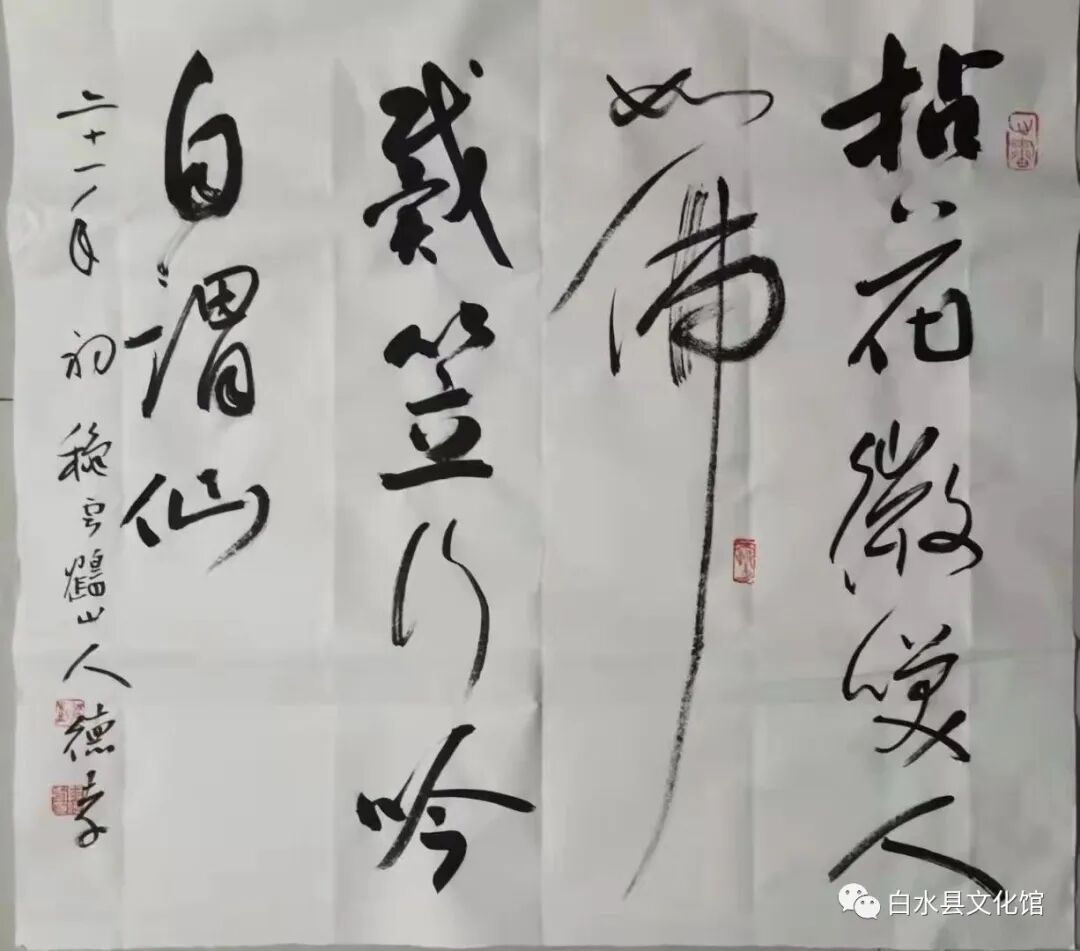 拈花微笑人
如佛
戴笠行吟
自谓仙
二十一年初穐云鶴山人德孝
白水县文化馆